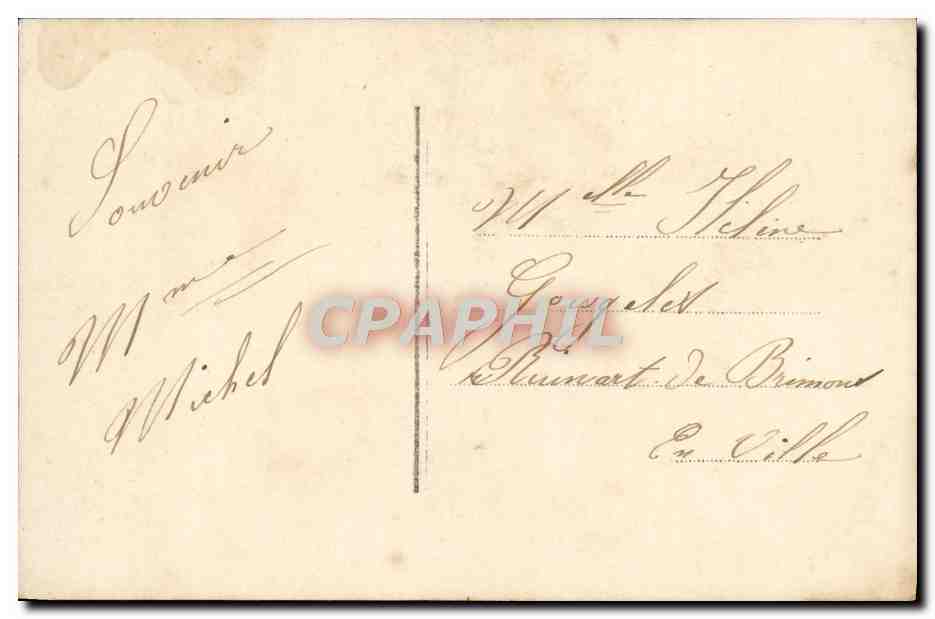 Souvenir
Mme
Michel
Melle Hélène
Ruinart de Brimont
En Ville
CPAPHIL